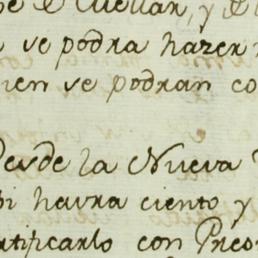 de Cuellar, y de
se podra hazer
ien se podran co
Desde la Nueva
havra ciento y
tificarlo con